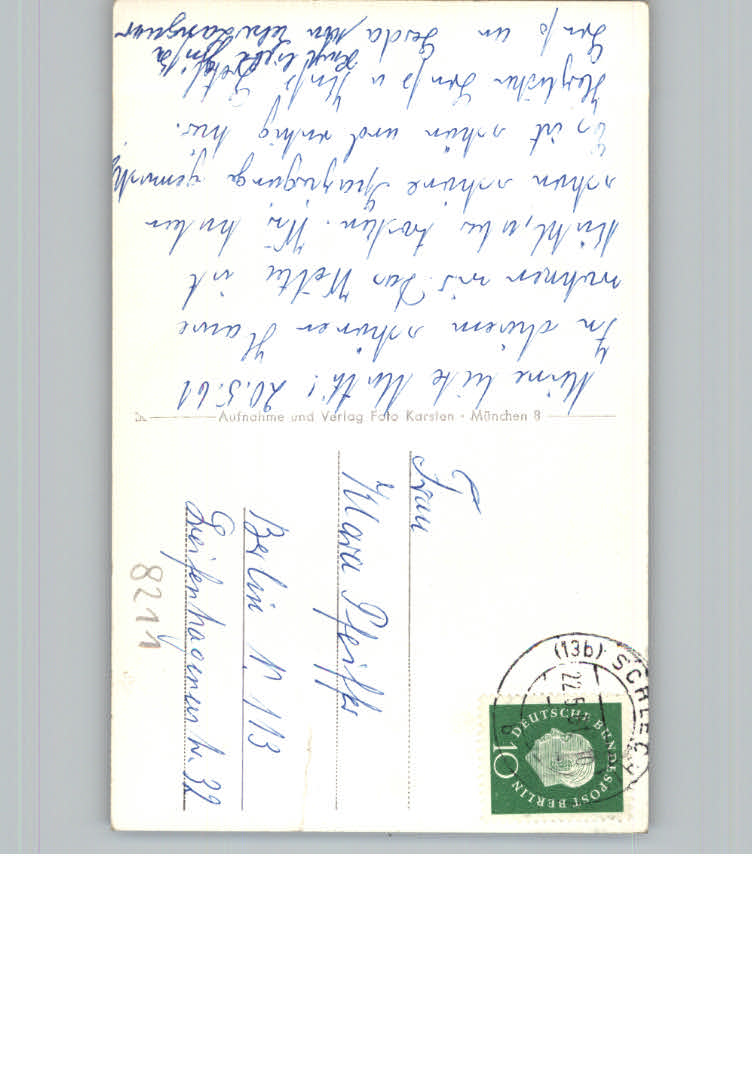 Meine liebe Mutti! 20.5.61
In diesem schönen Hause
wohnen wir. Das Wetter ist
kühl, aber trocken. Wir haben
schon schöne Spaziergänge gemacht.
Es ist schön und ruhig hier.
Herzlichen Gruß u Kuß
Gruß an Gerda
Aufnahme und Verlag Foto Karsten · München 8
Frau
Mara Pfeiffer
Berlin N 113
Greifenhagenerstr. 32
8211
(13b) SCHLECH
22.5.61
DEUTSCHE BUNDESPOST BERLIN
10